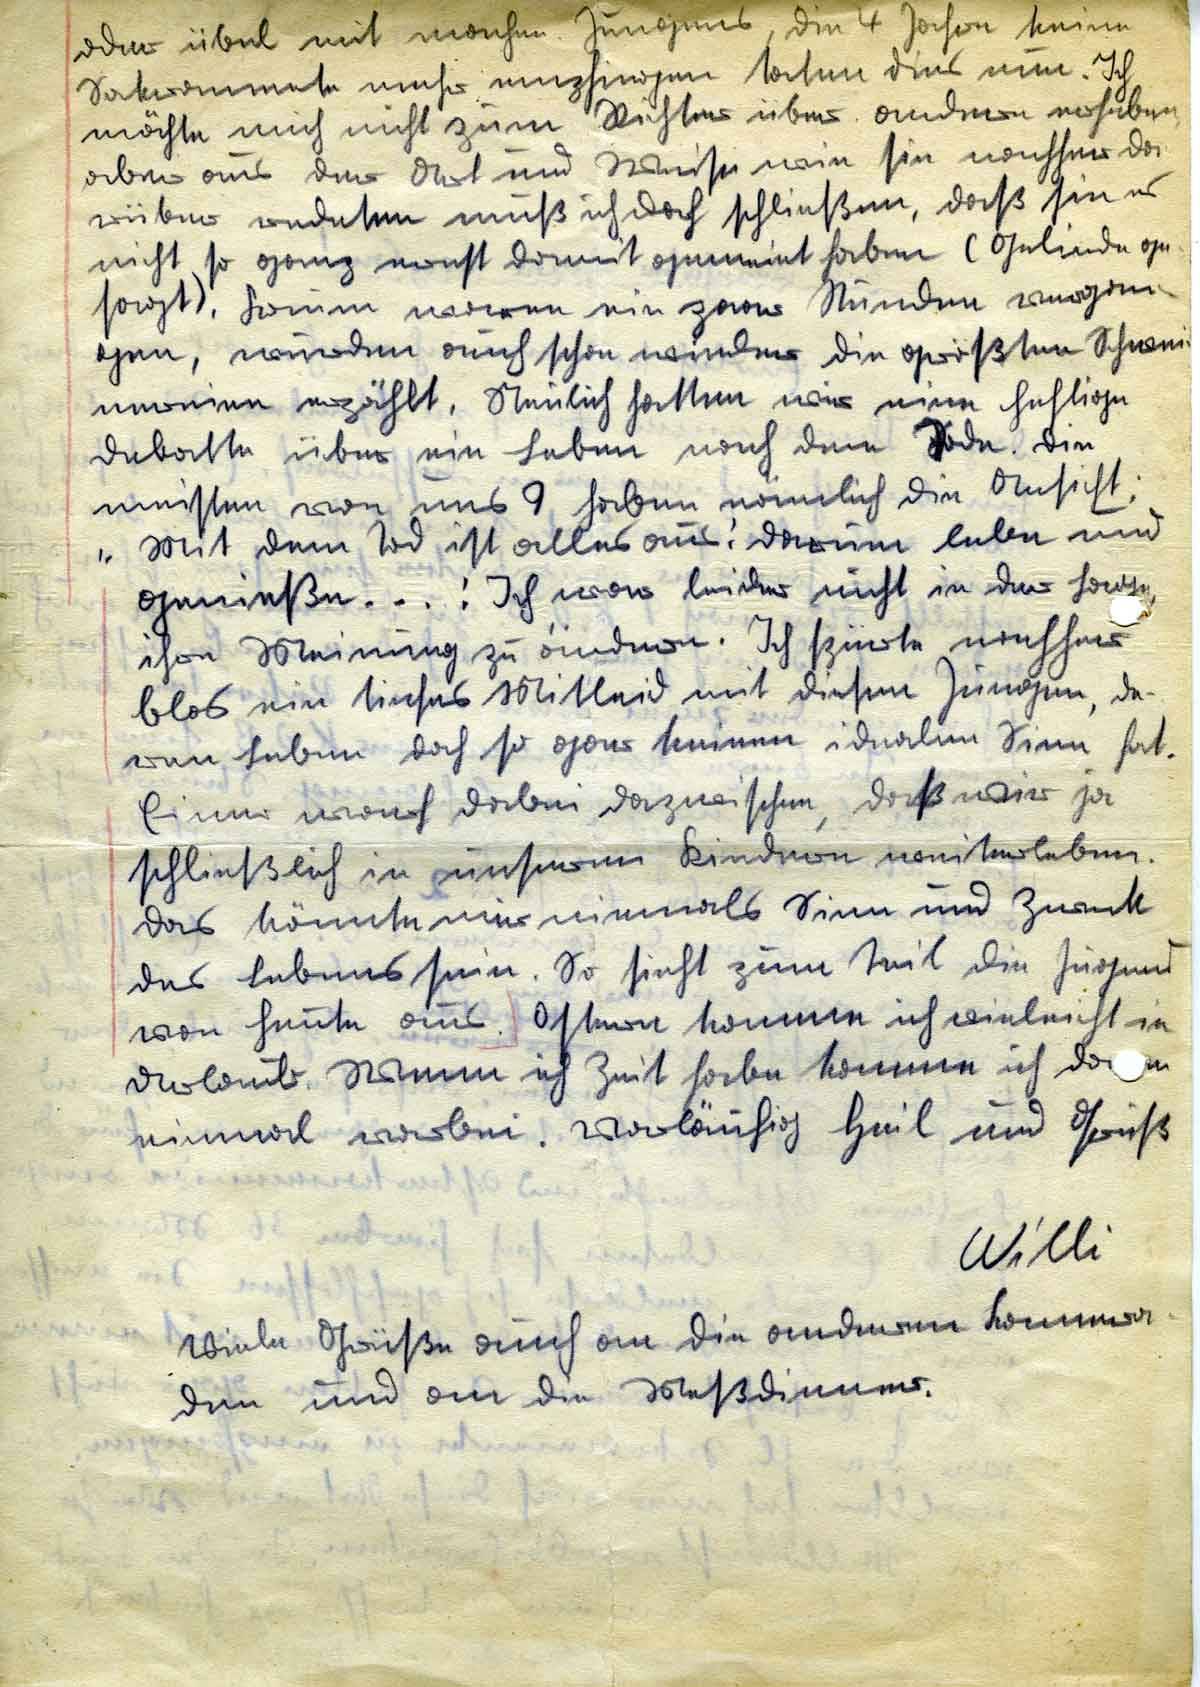 oder übel mit machen. Jungens, die 4 Jahre keine
Sakramente mehr empfingen taten dies nun. Ich
möchte mich nicht zum Richter über andere erheben,
aber aus der Art und Weise wie sie nachher da-
rüber redeten muß ich doch schließen, daß sie es
nicht so ganz ernst damit gemeint haben (Gelinde ge-
sagt). Kaum waren ein paar Stunden vergan-
gen, wurden auch schon wieder die größten Schwei-
nereien erzählt. Neulich hatten wir eine heftige
Debatte über ein Leben nach dem Tode. Die
meisten von uns 9 haben nämlich die Ansicht:
„Mit dem Tod ist alles aus! Darum lebe und
genieße...! Ich war leider nicht in der Lage,
ihre Meinung zu ändern. Ich spürte nachher
blos ein tiefes Mitleid mit diesen Jungen, de-
ren Leben doch so gar keinen idealen Sinn hat.
Einer warf dabei dazwischen, daß wir ja
schließlich in unseren Kindern weiterleben.
Das könnte mir niemals Sinn und Zweck
des Lebens sein. So sieht zum Teil die Jugend
von heute aus. Ostern komme ich vieleicht in
Urlaub. Wenn ich Zeit habe komme ich dann
einmal vorbei. Vorläufig Heil und Gruß
Willi
Viele Grüße auch an die anderen Kamera-
den und an die Meßdiener.